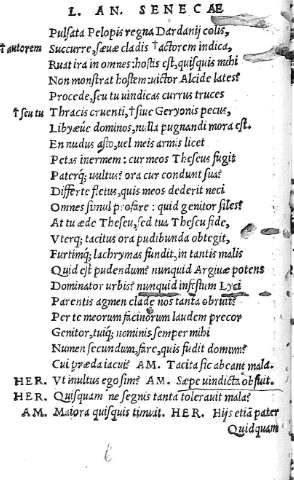 L. AN. SENECAE
Pulsata Pelopis regna Dardanij colis,
†autorem Succurre, sæuæ cladis †actorem indica,
Ruat ira in omnes: hostis est, quisquis mihi
Non monstrat hostem: uictor Alcide lates?
Procede, seu tu uindicas currus truces
†seu tu Thracis cruenti, †siue Geryonis pecus,
Libyæue dominos, nulla pugnandi mora est.
En nudus asto, uel meis armis licet
Petas inermem: cur meos Theseus fugit
Paterq; uultus? ora cur condunt sua?
Differte fletus, quis meos dederit neci
Omnes simul profare: quid genitor siles?
At tu æde Theseu, sed tua Theseu fide,
Vterq; tacitus ora pudibunda obtegit,
Furtimq; lachrymas fundit, in tantis malis
Quid est pudendum? nunquid Argiuæ potens
Dominator urbis? nunquid infestum Lyci
Parentis agmen clade nos tanta obruit?
Per te meorum facinorum laudem precor
Genitor, tuiq; nominis semper mihi
Numen secundum, fare, quis fudit domum?
Cui præda iacui? AM. Tacita sic abeant mala.
HER. Vt inultus ego sim? AM. Sæpe uindicta obfuit.
HER. Quisquam ne segnis tanta tolerauit mala?
AM. Maiora quisquis timuit. HER. Hijs etiã pater
Quidquam